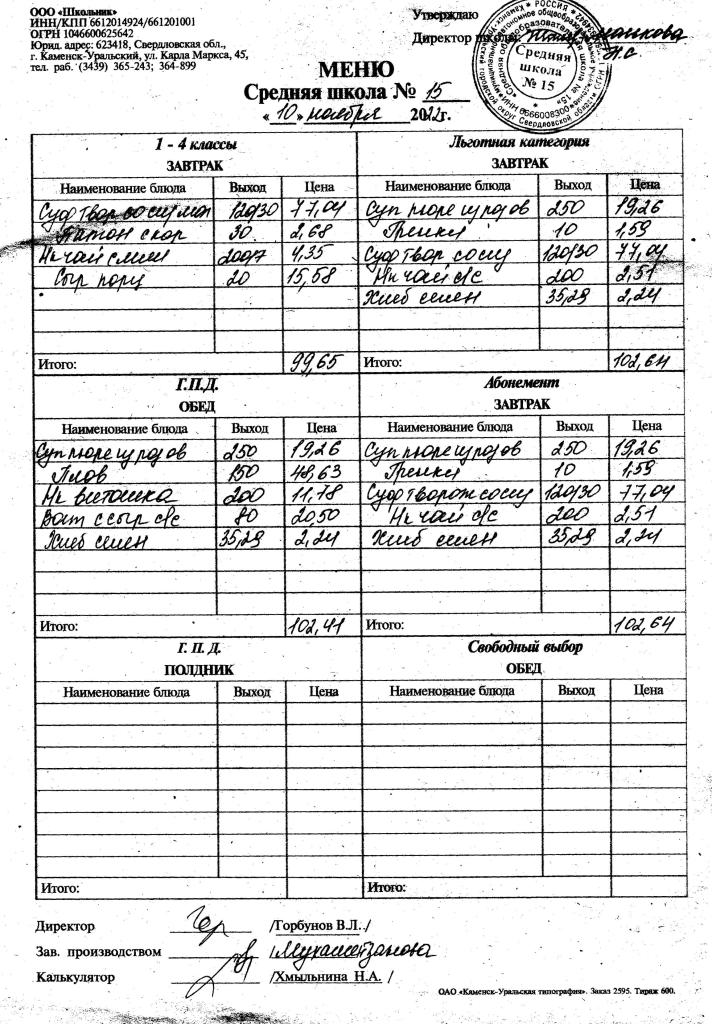 ООО «Школьник»
ИНН/КПП 6612014924/661201001
ОГРН 1046600625642
Юрид. адрес: 623418, Свердловская обл.,
г. Каменск-Уральский, ул. Карла Маркса, 45,
тел. раб. (3439) 365-243; 364-899
Утверждаю
Директор школы:
Средняя школа № 15
МЕНЮ
Средняя школа № 15
« 10 » ноября 2022г.
1 - 4 классы
ЗАВТРАК
Наименование блюда Выход Цена
Суф твор со сгу мол 120/30 77,04
Батон с кор 30 2,68
Нк чай с лим 200/7 4,35
Сыр порц 20 15,58
Итого: 99,65
Льготная категория
ЗАВТРАК
Наименование блюда Выход Цена
Суп пюре из розов 250 19,26
Гренки 10 1,59
Суф твор со сгу 120/30 77,04
Нк чай с/с 200 2,51
Хлеб 35,29 2,24
Итого: 102,64
Г.П.Д.
ОБЕД
Наименование блюда Выход Цена
Суп пюре из розов 250 19,26
Плов 150 48,63
Нк витошка 200 11,78
Ват с сыр с/с 80 20,50
Хлеб 35,29 2,24
Итого: 102,41
Абонемент
ЗАВТРАК
Наименование блюда Выход Цена
Суп пюре из розов 250 19,26
Гренки 10 1,59
Суф творож со сгу 120/30 77,04
Нк чай с/с 200 2,51
Хлеб 35,29 2,24
Итого: 102,64
Г. П. Д.
ПОЛДНИК
Наименование блюда Выход Цена
Итого:
Свободный выбор
ОБЕД
Наименование блюда Выход Цена
Итого:
Директор /Горбунов В.Л./
Зав. производством /Мухаметзанова
Калькулятор /Хмыльнина Н.А. /
ОАО «Каменск-Уральская типография». Заказ 2595. Тираж 600.